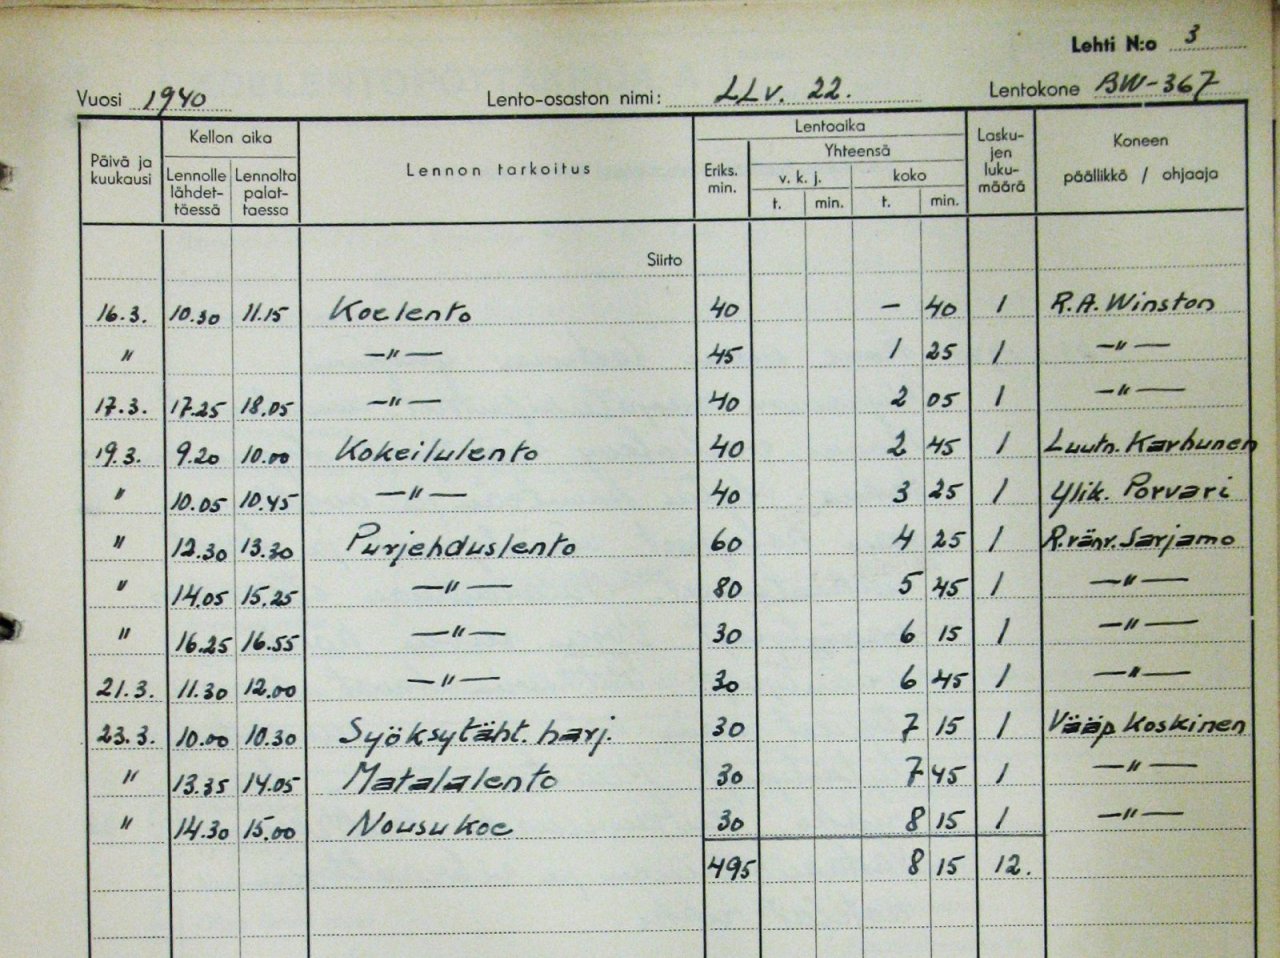 Lehti N:o 3
Vuosi 1940 Lento-osaston nimi: LLv. 22. Lentokone BW-367
Päivä ja kuukausi Kellon aika Lennolle lähdet-täessä Lennolta palat-taessa Lennon tarkoitus Lentoaika Eriks. min. Yhteensä v. k. j. t. min. koko t. min. Lasku-jen luku-määrä Koneen päällikkö / ohjaaja
Siirto
16.3. 10.30 11.15 Koelento 40 – 40 1 R.A. Winston
" —"— 45 1 25 1 —"—
17.3. 17.25 18.05 —"— 40 2 05 1 —"—
19.3. 9.20 10.00 Kokeilulento 40 2 45 1 Luutn. Karhunen
" 10.05 10.45 —"— 40 3 25 1 Ylik. Porvari
" 12.30 13.30 Purjehduslento 60 4 25 1 R.vänr. Sarjamo
" 14.05 15.25 —"— 80 5 45 1 —"—
" 16.25 16.55 —"— 30 6 15 1 —"—
21.3. 11.30 12.00 —"— 30 6 45 1 —"—
23.3. 10.00 10.30 Syöksytäht. harj. 30 7 15 1 Vääp Koskinen
" 13.35 14.05 Matalalento 30 7 45 1 —"—
" 14.30 15.00 Nousukoe 30 8 15 1 —"—
495 8 15 12.